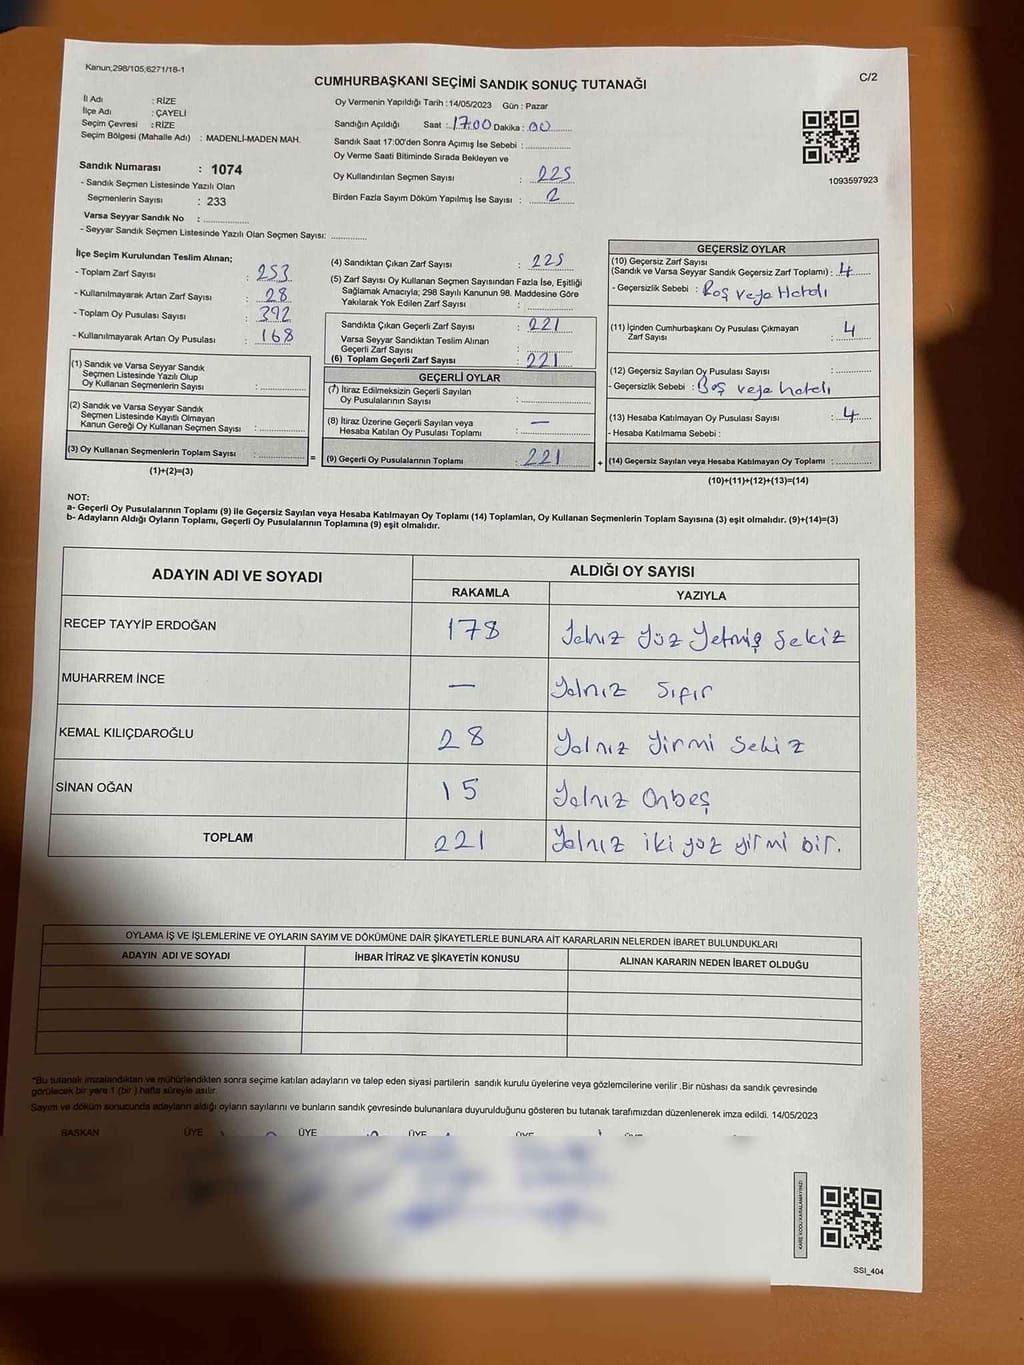 Kanun;298/105,6271/18-1
CUMHURBAŞKANI SEÇİMİ SANDIK SONUÇ TUTANAĞI
C/2
İl Adı : RİZE
İlçe Adı : ÇAYELİ
Seçim Çevresi : RİZE
Seçim Bölgesi (Mahalle Adı) : MADENLİ-MADEN MAH.
Sandık Numarası : 1074
- Sandık Seçmen Listesinde Yazılı Olan
Seçmenlerin Sayısı : 233
Varsa Seyyar Sandık No :
- Seyyar Sandık Seçmen Listesinde Yazılı Olan Seçmen Sayısı:
Oy Vermenin Yapıldığı Tarih :14/05/2023 Gün : Pazar
Sandığın Açıldığı Saat : 17:00 Dakika : 00
Sandık Saat 17:00'den Sonra Açımış İse Sebebi :
Oy Verme Saati Bitiminde Sırada Bekleyen ve
Oy Kullandırılan Seçmen Sayısı : 225
Birden Fazla Sayım Döküm Yapılmış İse Sayısı : 2
1093597923
İlçe Seçim Kurulundan Teslim Alınan;
- Toplam Zarf Sayısı : 253
- Kullanılmayarak Artan Zarf Sayısı : 28
- Toplam Oy Pusulası Sayısı : 392
- Kullanılmayarak Artan Oy Pusulası : 168
(1) Sandık ve Varsa Seyyar Sandık
Seçmen Listesinde Yazılı Olup
Oy Kullanan Seçmenlerin Sayısı :
(2) Sandık ve Varsa Seyyar Sandık
Seçmen Listesinde Kayıtlı Olmayan
Kanun Gereği Oy Kullanan Seçmen Sayısı :
(3) Oy Kullanan Seçmenlerin Toplam Sayısı :
(1)+(2)=(3)
(4) Sandıktan Çıkan Zarf Sayısı : 225
(5) Zarf Sayısı Oy Kullanan Seçmen Sayısından Fazla İse, Eşitliği
Sağlamak Amacıyla; 298 Sayılı Kanunun 98. Maddesine Göre
Yakılarak Yok Edilen Zarf Sayısı :
Sandıkta Çıkan Geçerli Zarf Sayısı : 221
Varsa Seyyar Sandıktan Teslim Alınan
Geçerli Zarf Sayısı :
(6) Toplam Geçerli Zarf Sayısı : 221
GEÇERLİ OYLAR
(7) İtiraz Edilmeksizin Geçerli Sayılan
Oy Pusulalarının Sayısı :
(8) İtiraz Üzerine Geçerli Sayılan veya
Hesaba Katılan Oy Pusulası Toplamı : —
= (9) Geçerli Oy Pusulalarının Toplamı : 221
GEÇERSİZ OYLAR
(10) Geçersiz Zarf Sayısı
(Sandık ve Varsa Seyyar Sandık Geçersiz Zarf Toplamı) : 4
- Geçersizlik Sebebi : Boş veya Hatalı
(11) İçinden Cumhurbaşkanı Oy Pusulası Çıkmayan
Zarf Sayısı : 4
(12) Geçersiz Sayılan Oy Pusulası Sayısı :
- Geçersizlik Sebebi : Boş veya hatalı
(13) Hesaba Katılmayan Oy Pusulası Sayısı : 4
- Hesaba Katılmama Sebebi :
+ (14) Geçersiz Sayılan veya Hesaba Katılmayan Oy Toplamı :
(10)+(11)+(12)+(13)=(14)
NOT:
a- Geçerli Oy Pusulalarının Toplamı (9) ile Geçersiz Sayılan veya Hesaba Katılmayan Oy Toplamı (14) Toplamları, Oy Kullanan Seçmenlerin Toplam Sayısına (3) eşit olmalıdır. (9)+(14)=(3)
b- Adayların Aldığı Oyların Toplamı, Geçerli Oy Pusulalarının Toplamına (9) eşit olmalıdır.
ADAYIN ADI VE SOYADI ALDIĞI OY SAYISI
RAKAMLA YAZIYLA
RECEP TAYYİP ERDOĞAN 178 Yalnız Yüz Yetmiş Sekiz
MUHARREM İNCE — Yalnız Sıfır
KEMAL KILIÇDAROĞLU 28 Yalnız Yirmi Sekiz
SİNAN OĞAN 15 Yalnız Onbeş
TOPLAM 221 Yalnız iki yüz yirmi bir.
OYLAMA İŞ VE İŞLEMLERİNE VE OYLARIN SAYIM VE DÖKÜMÜNE DAİR ŞİKAYETLERLE BUNLARA AİT KARARLARIN NELERDEN İBARET BULUNDUKLARI
ADAYIN ADI VE SOYADI İHBAR İTİRAZ VE ŞİKAYETİN KONUSU ALINAN KARARIN NEDEN İBARET OLDUĞU
*Bu tutanak imzalandıktan ve mühürlendikten sonra seçime katılan adayların ve talep eden siyasi partilerin sandık kurulu üyelerine veya gözlemcilerine verilir .Bir nüshası da sandık çevresinde
görülecek bir yere 1 (bir ) hafta süreyle asılır.
Sayım ve döküm sonucunda adayların aldığı oyların sayılarını ve bunların sandık çevresinde bulunanlara duyurulduğunu gösteren bu tutanak tarafımızdan düzenlenerek imza edildi. 14/05/2023
BAŞKAN ÜYE ÜYE ÜYE
KARE KODU KARALAMAYINIZ!
SSI_404